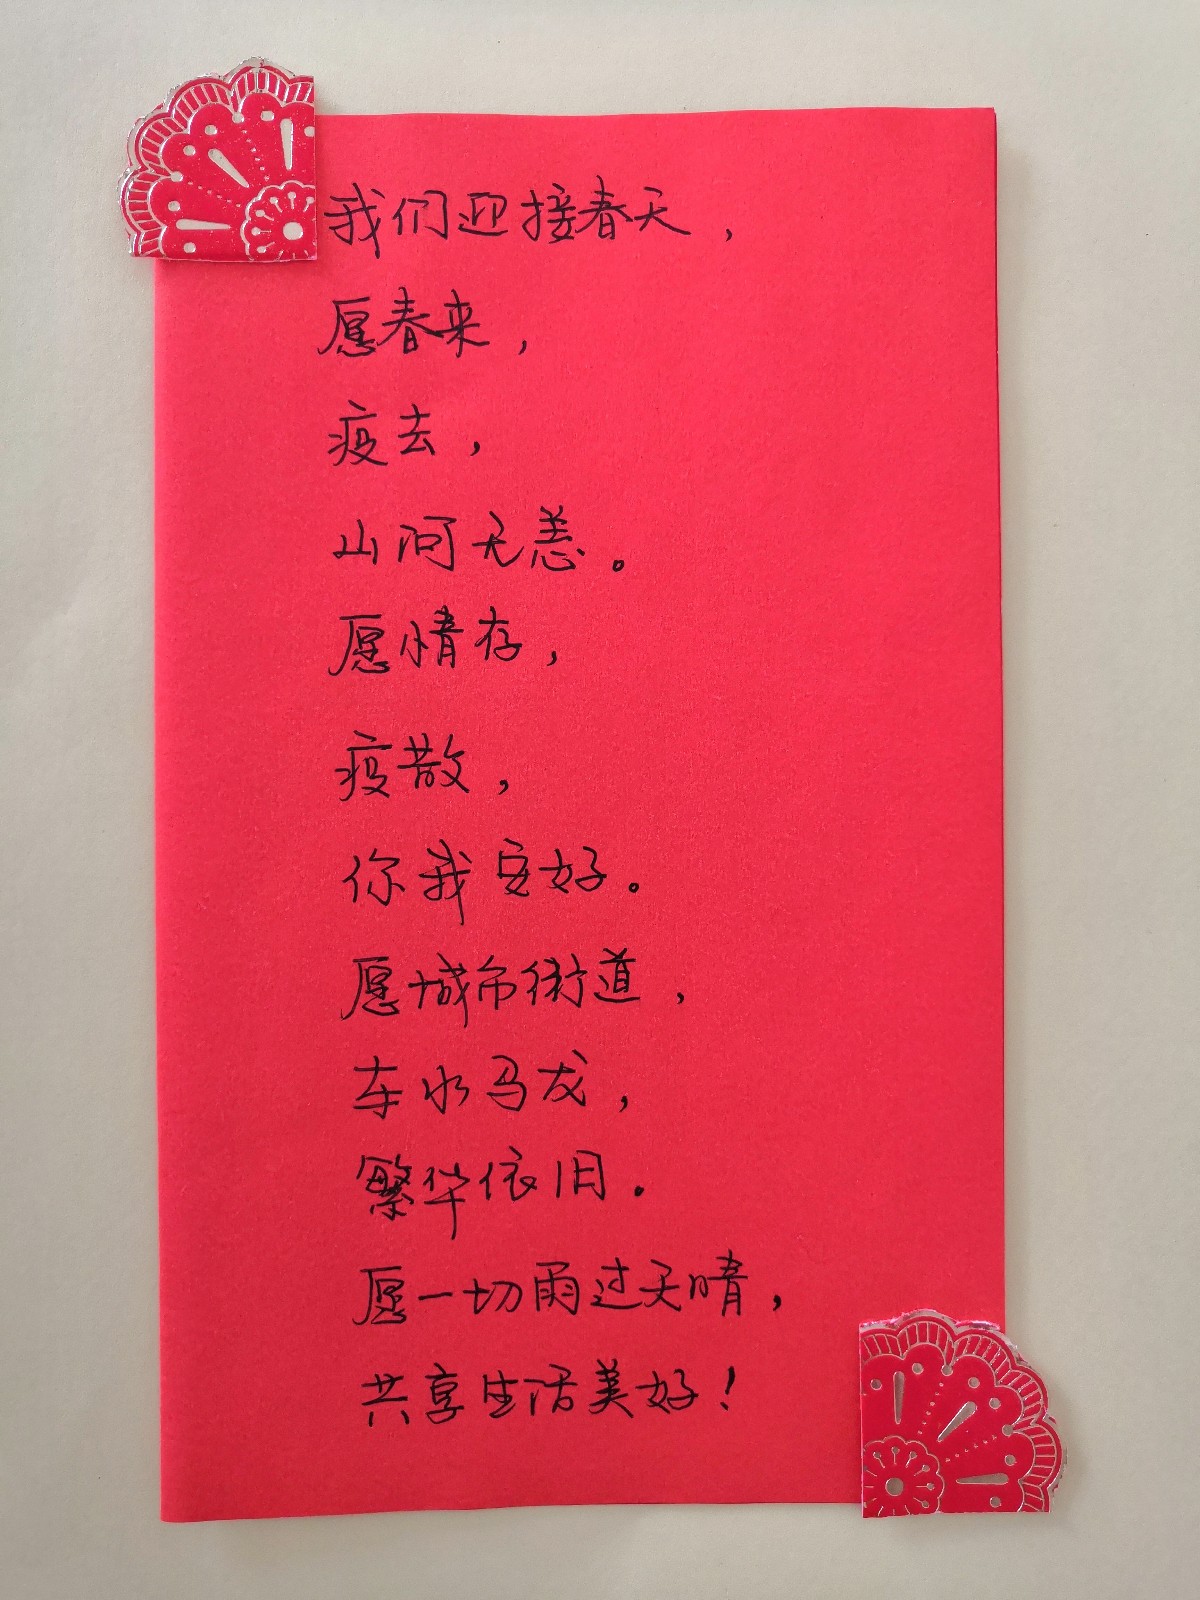 我们迎接春天，
愿春来，
疫去，
山河无恙。
愿情存，
疫散，
你我安好。
愿城市街道，
车水马龙，
繁华依旧。
愿一切雨过天晴，
共享生活美好！